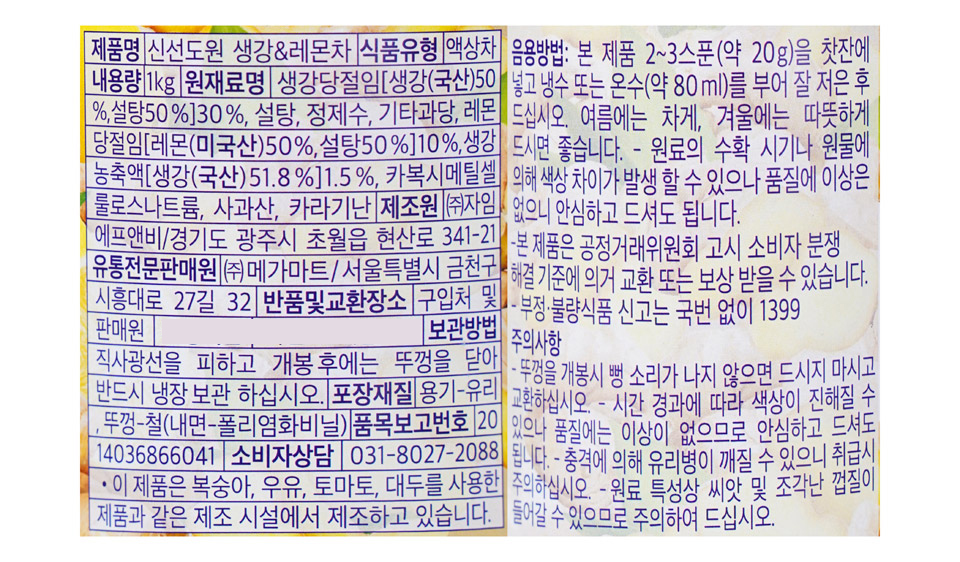 제품명 신선도원 생강&레몬차 식품유형 액상차
내용량 1kg 원재료명 생강당절임[생강(국산)50
%,설탕50%]30%, 설탕, 정제수, 기타과당, 레몬
당절임[레몬(미국산)50%,설탕50%]10%,생강
농축액[생강(국산)51.8%]1.5%, 카복시메틸셀
룰로스나트륨, 사과산, 카라기난 제조원 ㈜자임
에프앤비/경기도 광주시 초월읍 현산로 341-21
유통전문판매원 ㈜메가마트/서울특별시 금천구
시흥대로 27길 32 반품및교환장소 구입처 및
판매원 보관방법
직사광선을 피하고 개봉후에는 뚜껑을 닫아
반드시 냉장보관 하십시오. 포장재질 용기-유리
, 뚜껑-철(내면-폴리염화비닐) 품목보고번호 20
14036866041 소비자상담 031-8027-2088
•이 제품은 복숭아, 우유, 토마토, 대두를 사용한
제품과 같은 제조 시설에서 제조하고 있습니다.
음용방법: 본 제품 2~3스푼(약 20g)을 찻잔에
넣고 냉수 또는 온수(약 80ml)를 부어 잘 저은 후
드십시오. 여름에는 차게, 겨울에는 따뜻하게
드시면 좋습니다. - 원료의 수확 시기나 원물에
의해 색상 차이가 발생 할 수 있으나 품질에 이상은
없으니 안심하고 드셔도 됩니다.
-본 제품은 공정거래위원회 고시 소비자 분쟁
해결 기준에 의거 교환 또는 보상 받을 수 있습니다.
- 부정·불량식품 신고는 국번 없이 1399
주의사항
- 뚜껑을 개봉시 뻥 소리가 나지 않으면 드시지 마시고
교환하십시오. - 시간 경과에 따라 색상이 진해질 수
있으나 품질에는 이상이 없으므로 안심하고 드셔도
됩니다. - 충격에 의해 유리병이 깨질 수 있으니 취급시
주의하십시오. - 원료 특성상 씨앗 및 조각난 껍질이
들어갈 수 있으므로 주의하여 드십시오.